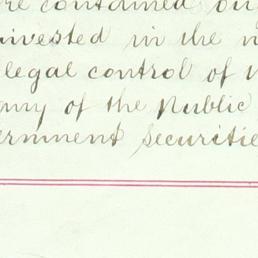 contained
invested in the
legal control of
of the Public
ernment securitie